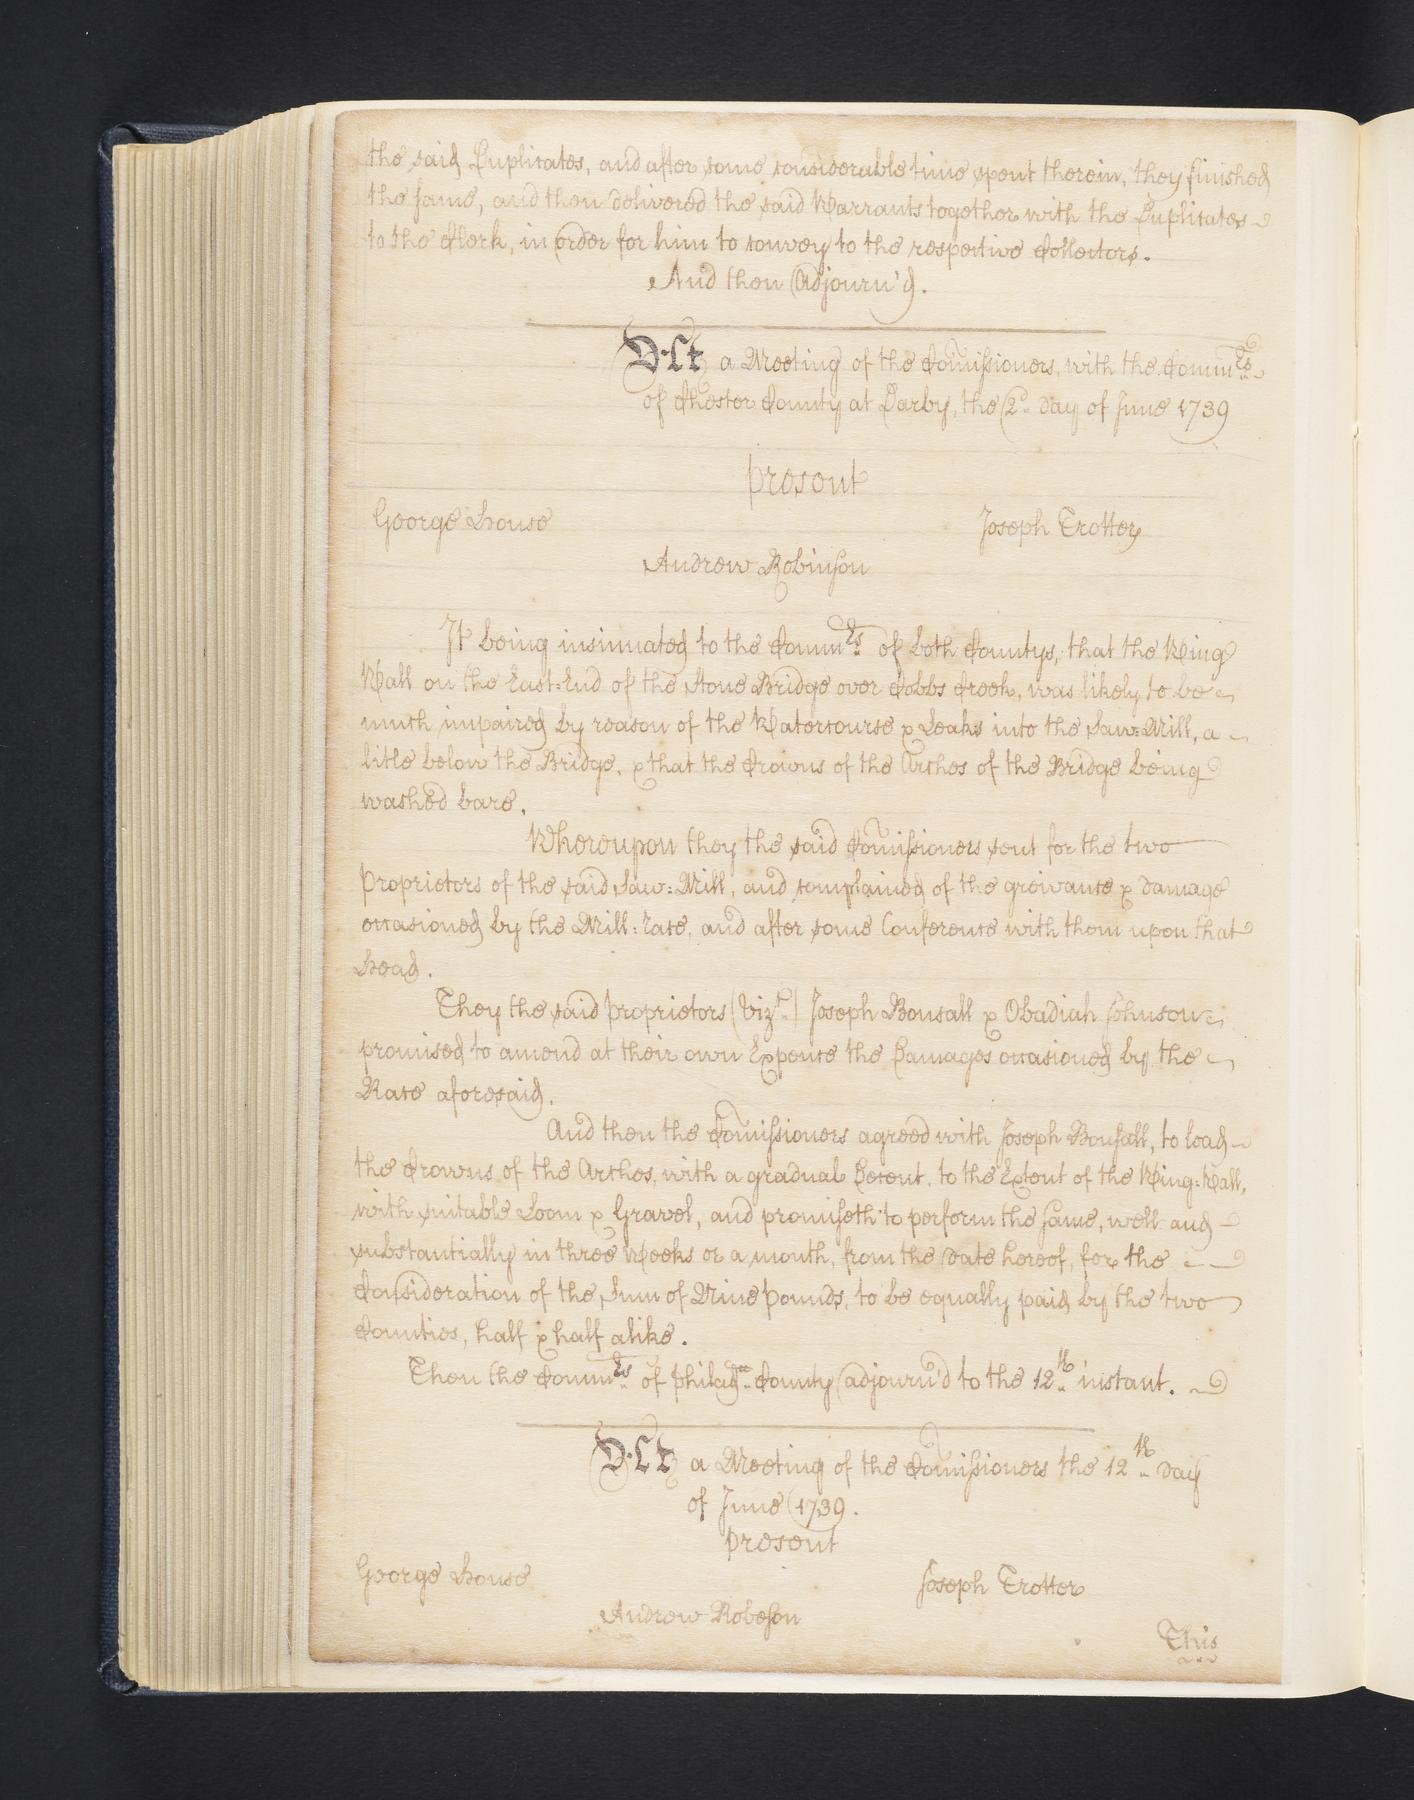 the said Duplicates, and after some considerable time spent therein, they finished
the same, and then delivered the said Warrants together with the Duplicates
to the Clerk, in order for him to convey to the respective Collectors.
And then Adjourn'd.
At a Meeting of the Comissioners, with the Comm.rs
of Chester County at Darby, the 2.d day of June 1739
present
George House
Joseph Trotter
Andrew Robinson
It being insinuated to the Comm.rs of both Countys, that the Wing
Wall on the East=End of the Stone Bridge over Cobbs Creek, was likely to be
much impaired by reason of the Watercourse & Leaks into the Saw=Mill, a
litle below the Bridge, & that the Crowns of the Arches of the Bridge being
washed bare.
Whereupon they the said Comissioners sent for the two
Proprietors of the said Saw=Mill, and complained of the greivance & damage
occasioned by the Mill=race, and after some Conference with them upon that
head.
They the said proprietors (viz.t) Joseph Bonsall & Obadiah Johnson
promised to amend at their own Expence the Damages occasioned by the
Race aforesaid.
And then the Comissioners agreed with Joseph Bonsall, to load
the Crowns of the Arches, with a gradual Descent, to the Extent of the Wing=Wall,
with suitable Loom & Gravel, and promiseth to perform the same, well and
substantially in three Weeks or a month, from the date hereof, for the
Consideration of the Sum of Nine pounds, to be equally paid by the two
Counties, half & half alike.
Then the Comm.rs of philad.a County adjourn'd to the 12.th instant.
At a Meeting of the Comissioners the 12.th day
of June 1739.
present
George House
Joseph Trotter
Andrew Robeson
This